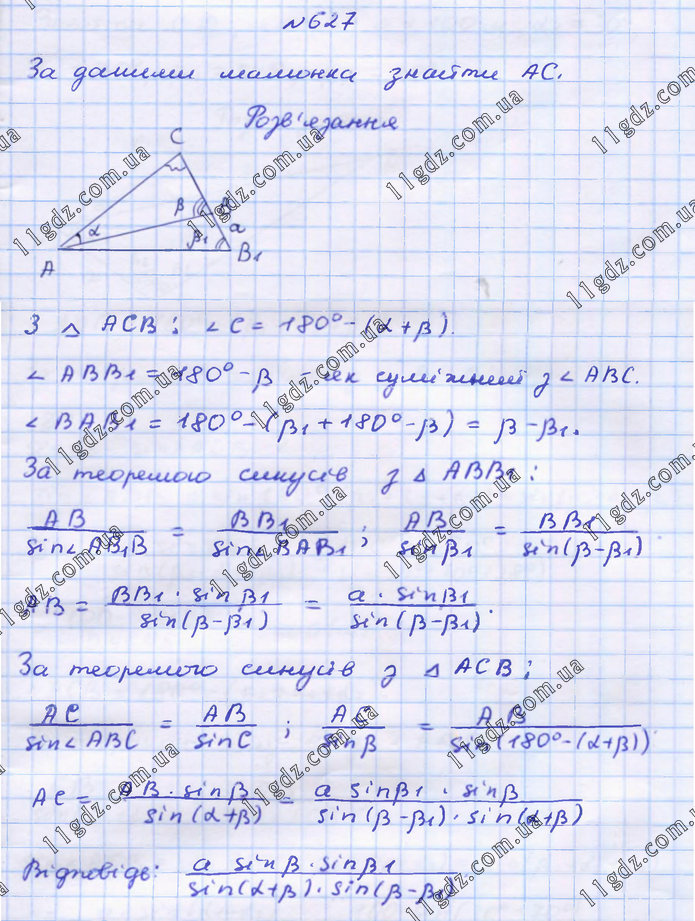 №627
За даними малюнка знайти AC.
Розв'язання
C
β
a
α
β₁
A
B₁
З △ ACB: ∠C = 180° - (α+β).
∠ABB₁ = 180° - β - як суміжний з ∠ABC.
∠BAB₁ = 180° - (β₁ + 180° - β) = β - β₁.
За теоремою синусів з △ ABB₁:
AB / sin∠AB₁B = BB₁ / sin∠BAB₁ ; AB / sinβ₁ = BB₁ / sin(β-β₁).
AB = BB₁ · sinβ₁ / sin(β-β₁) = a · sinβ₁ / sin(β-β₁).
За теоремою синусів з △ ACB:
AC / sin∠ABC = AB / sinC ; AC / sinβ = AB / sin(180°-(α+β))
AC = AB · sinβ / sin(α+β) = a sinβ₁ · sinβ / sin(β-β₁) · sin(α+β)
Відповідь: a sinβ · sinβ₁ / sin(α+β) · sin(β-β₁)
11gdz.com.ua